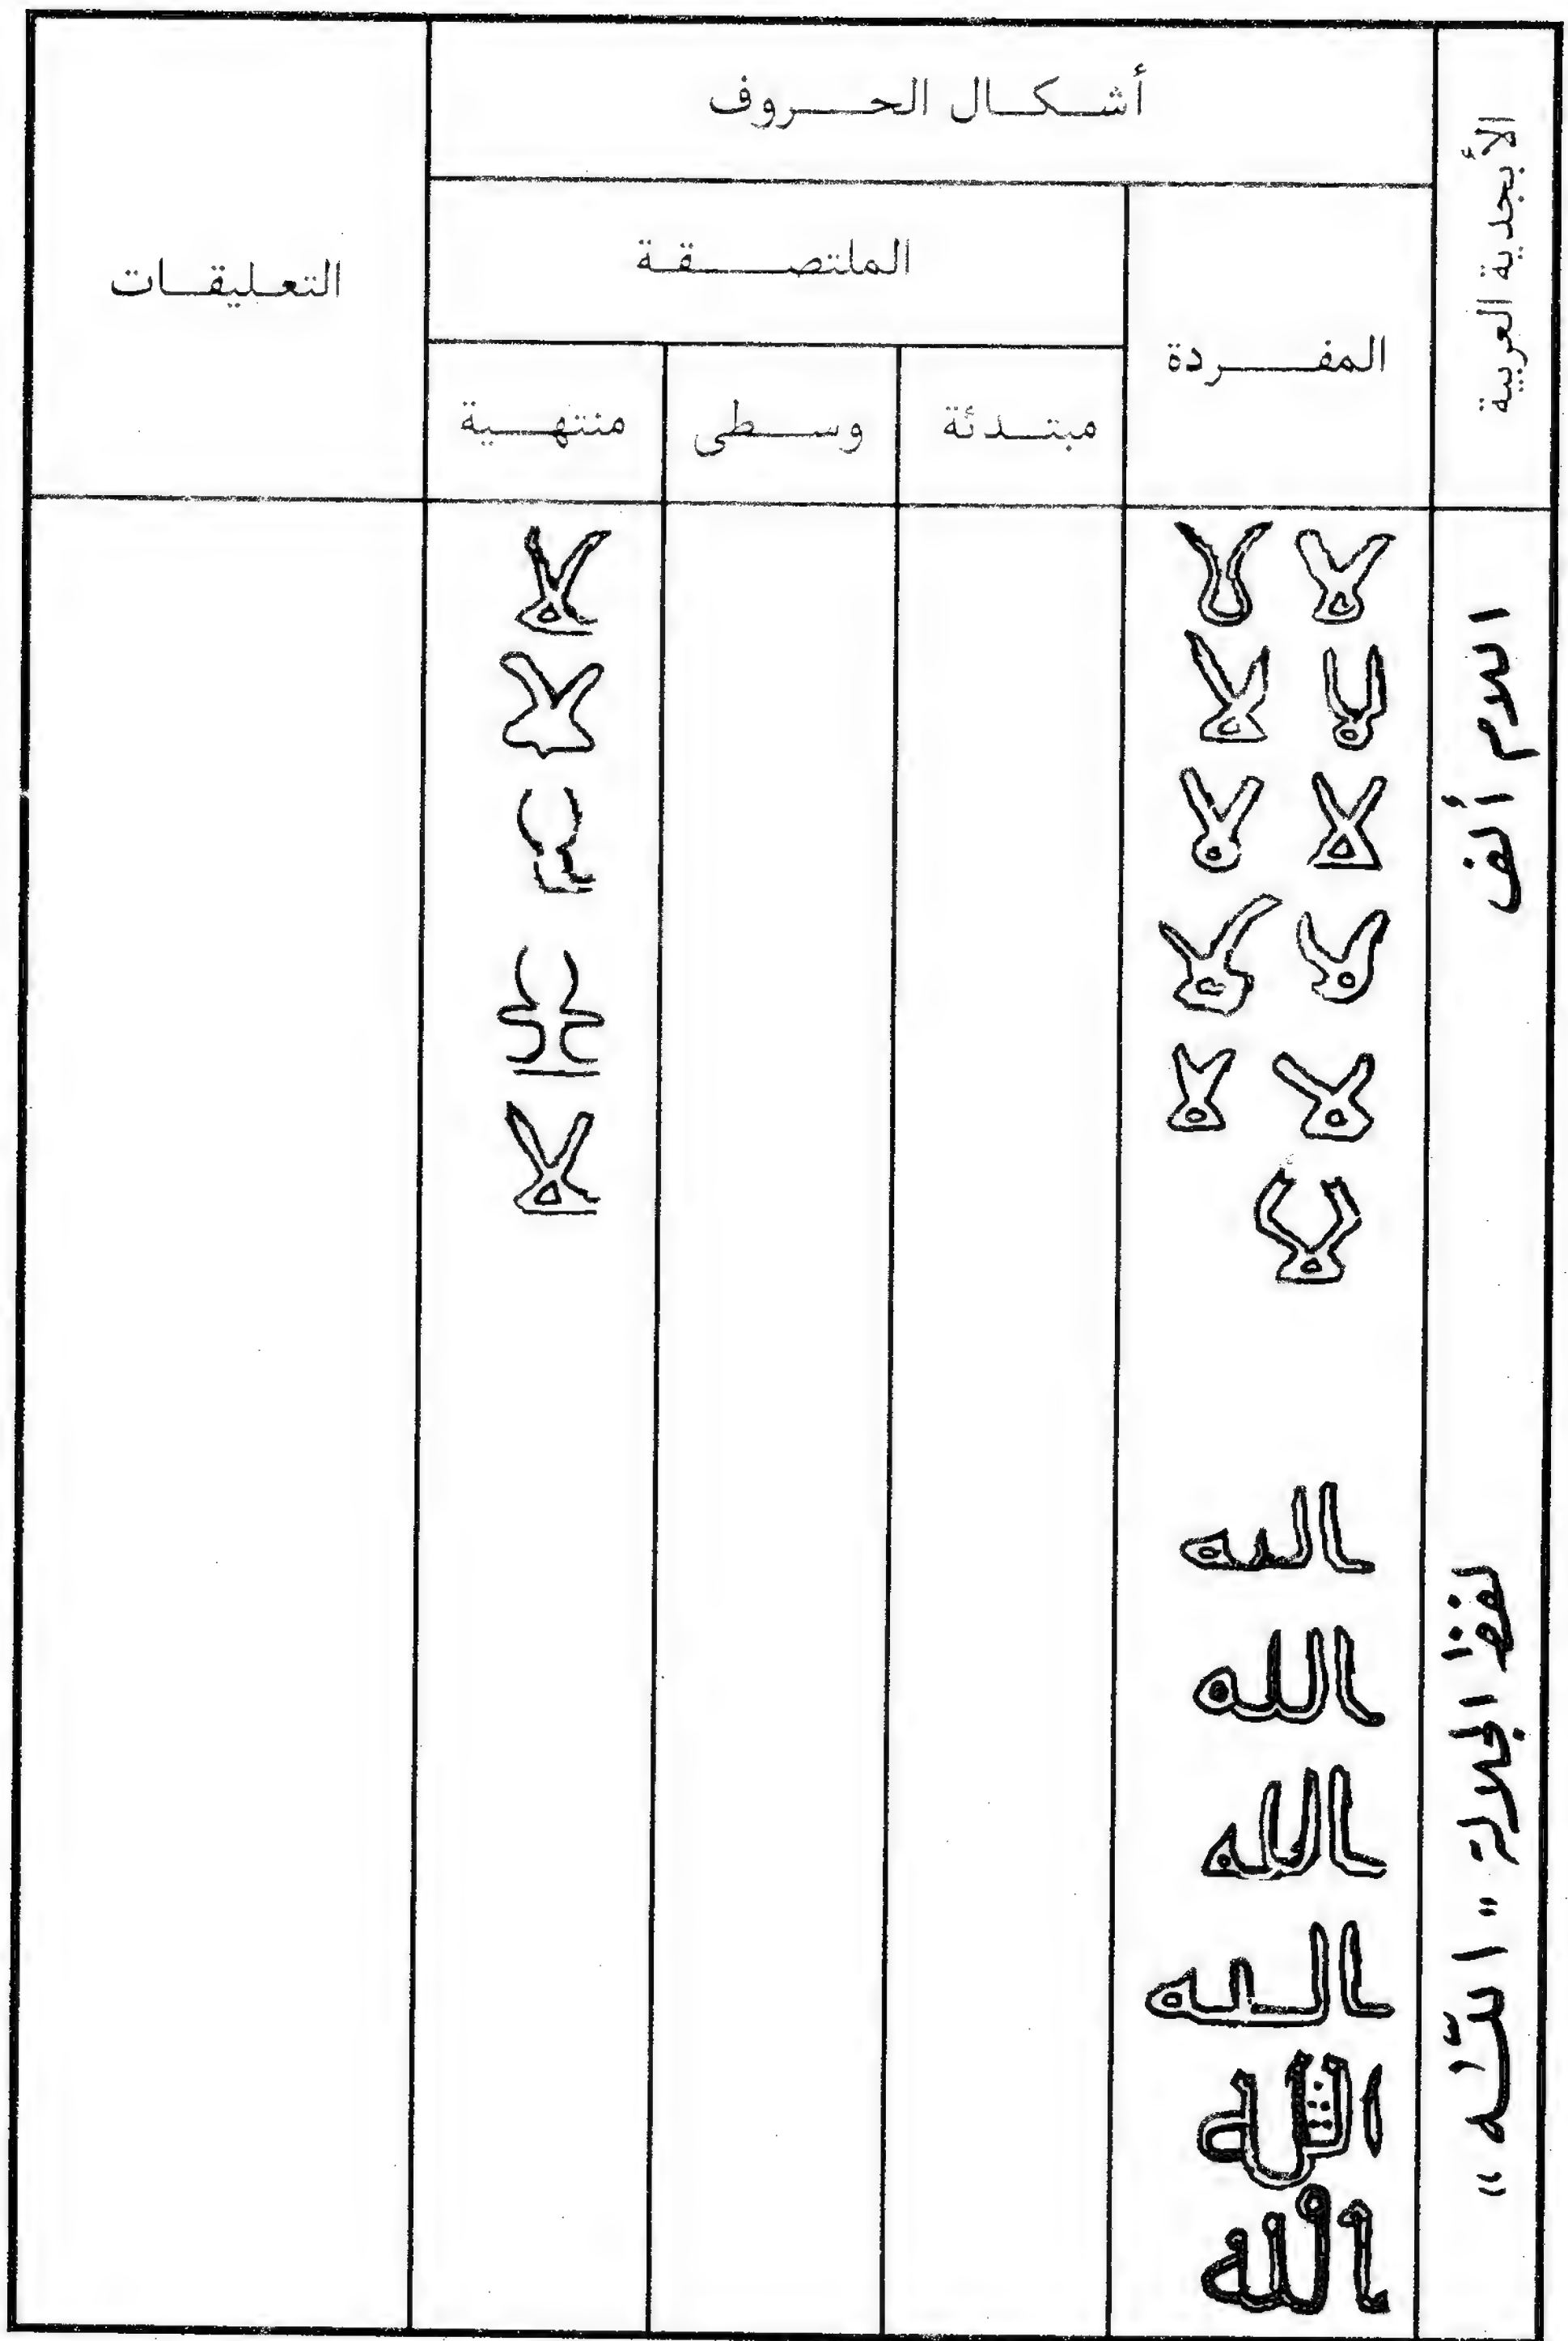 الأبجدية العربية
أشكال الحروف
التعليقات
المفردة
الملتصقة
مبتدئة
وسطى
منتهية
اللام ألف
لا لا
لا لا
لا لا
لا لا
لا لا
لا
لا
لا
لا
لا
لا
لفظ الجلالة "اللّٰه"
الله
الله
الله
الله
الله
الله